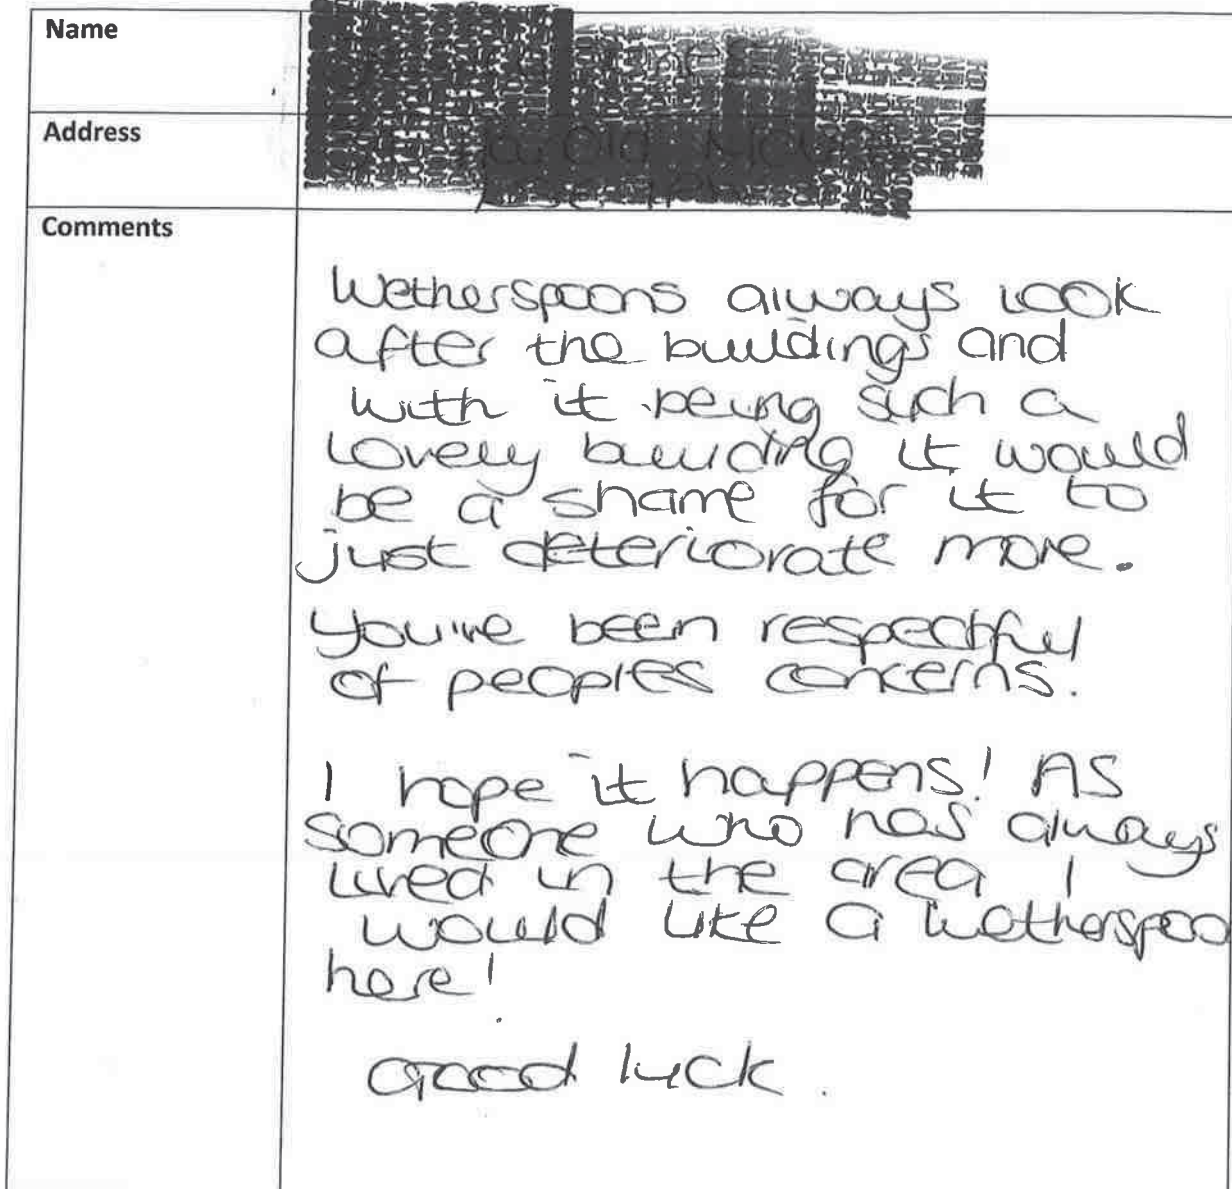 Name
Address
Comments
Wetherspoons always look
after the buildings and
with it being such a
lovely building it would
be a shame for it to
just deteriorate more.
You've been respectful
of peoples concerns.
I hope it happens! As
someone who has always
lived in the area I
would like a wetherspoo
here!
Good luck.